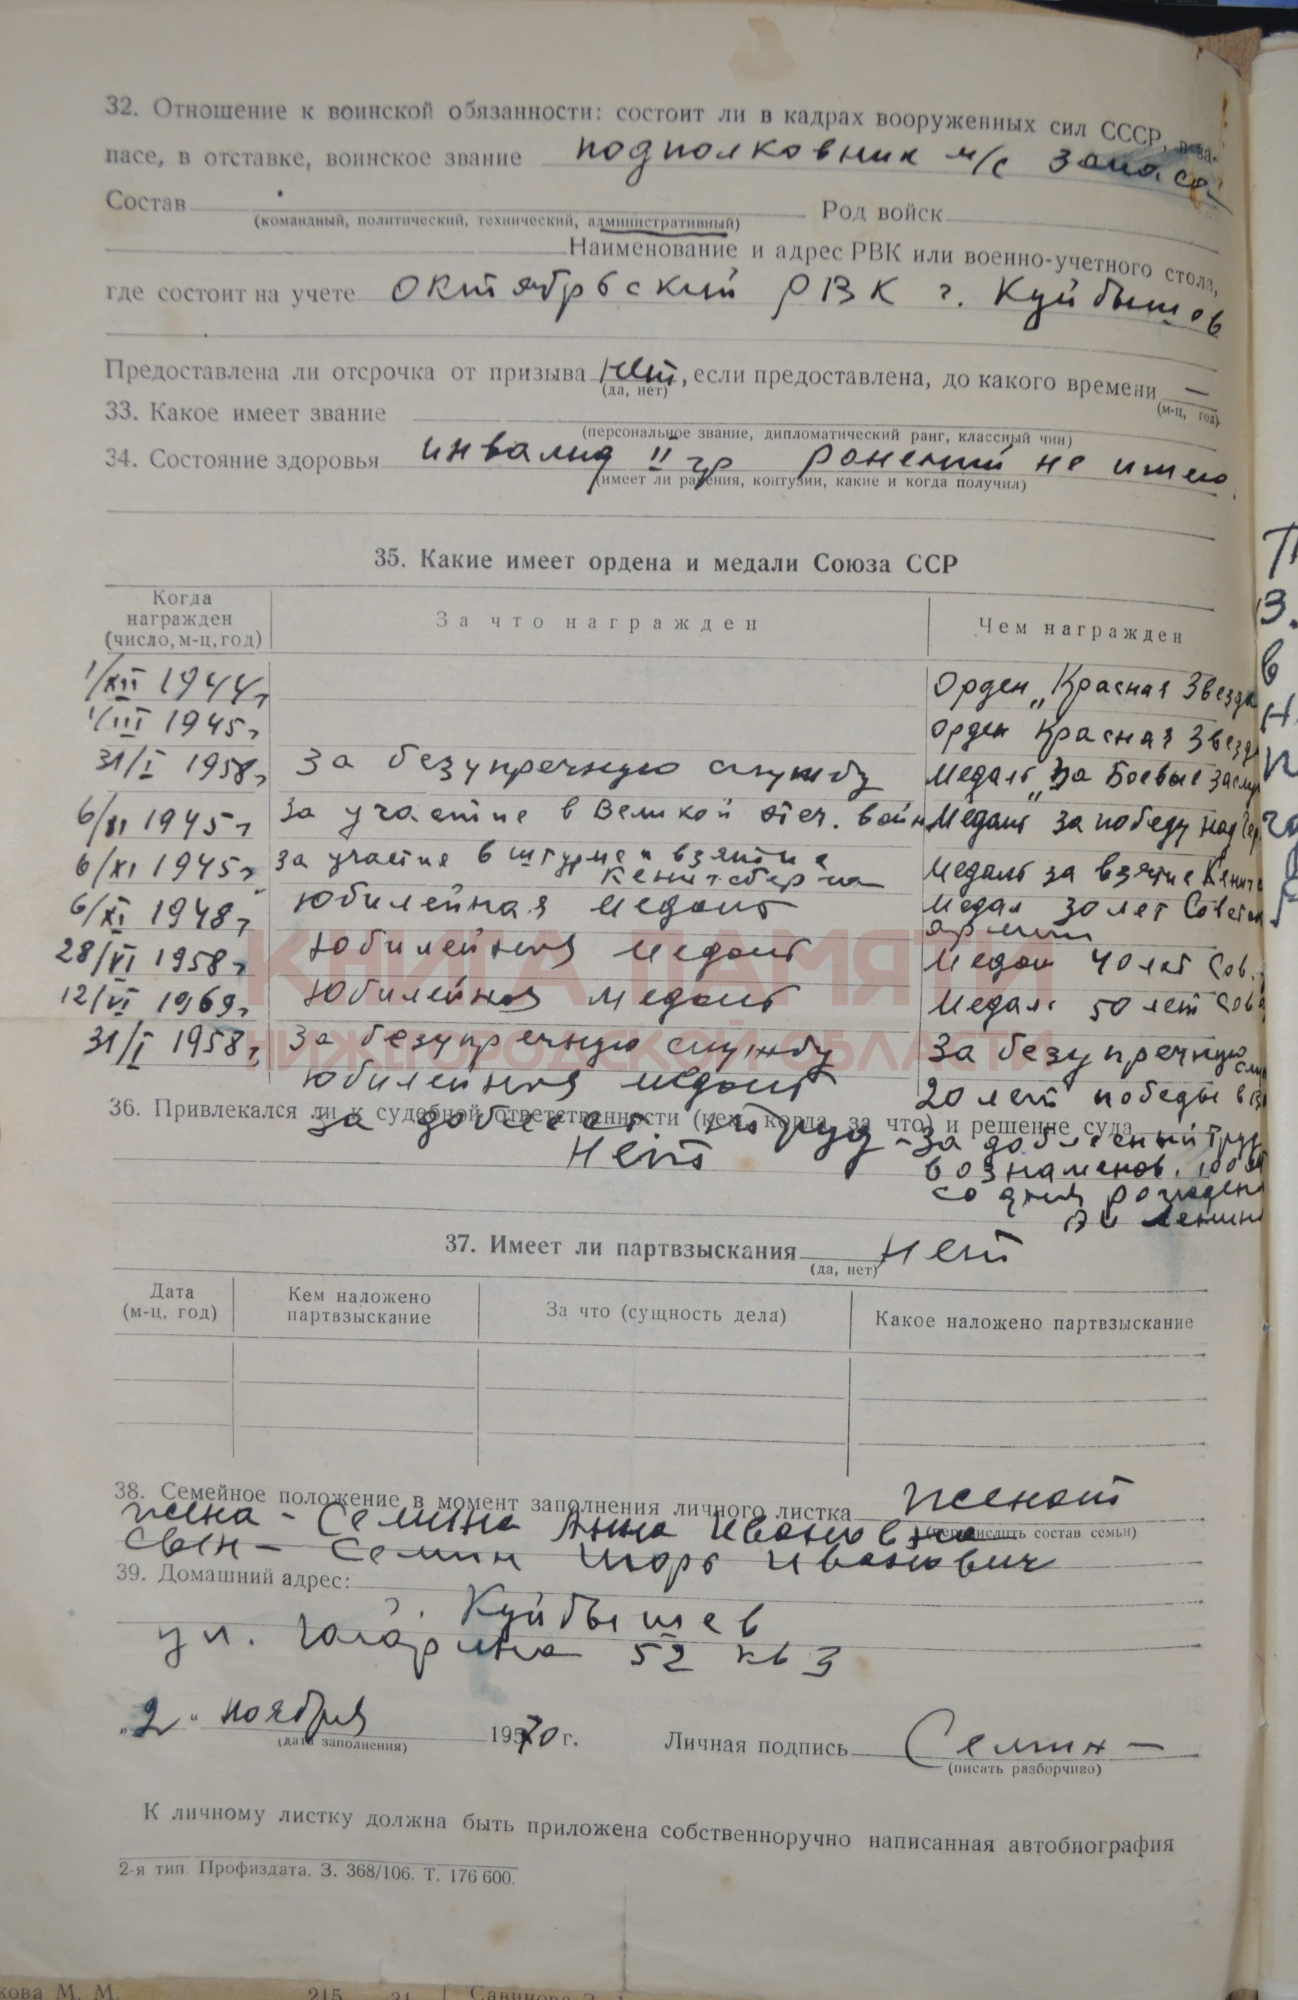 32. Отношение к воинской обязанности: состоит ли в кадрах вооруженных сил СССР, в за-
пасе, в отставке, воинское звание подполковник м/с запаса
Состав Род войск
(командный, политический, технический, административный)
Наименование и адрес РВК или военно-учетного стола,
где состоит на учете Октябрьский РВК г. Куйбышев
Предоставлена ли отсрочка от призыва нет, если предоставлена, до какого времени —
(да, нет) (м-ц, год)
33. Какое имеет звание
(персональное звание, дипломатический ранг, классный чин)
34. Состояние здоровья инвалид II гр ранений не имею.
(имеет ли ранения, контузии, какие и когда получил)
35. Какие имеет ордена и медали Союза ССР
Когда награжден (число, м-ц, год) За что награжден Чем награжден
1/XII 1944г Орден „Красная Звезда
1/III 1945г Орден Красная Звезд
31/I 1958г За безупречную службу Медаль „За Боевые заслу
6/XI 1945г За участие в Великой отеч. войн Медаль за победу над Гер
6/XI 1945г за участие в штурме и взятие Медаль за взятие Кениг
Кенигсберга
6/XI 1948г Юбилейная медаль Медал 30 лет Советск
армии
28/VI 1958г Юбилейная медаль Медаль 40 лет Сов.
12/VI 1969г Юбилейная медаль Медаль 50 лет Сов
31/I 1958г За безупречную службу За безупречную слу
Юбилейная медаль 20 лет победы в В
36. Привлекался ли к судебной ответственности (кем, когда, за что) и решение суда
За доблест труд - За доблесный Труд
Нет в ознаменов. 100 лет
со дня рожден
Ленин
37. Имеет ли партвзыскания Нет
(да, нет)
Дата (м-ц, год) Кем наложено партвзыскание За что (сущность дела) Какое наложено партвзыскание
38. Семейное положение в момент заполнения личного листка Женат
(перечислить состав семьи)
жена - Семина Анна Ивановна
Сын - Семин Игорь Иванович
39. Домашний адрес:
г. Куйбышев
ул. Гагарина 52 кв 3
„2“ ноября 1970 г. Личная подпись Семин —
(дата заполнения) (писать разборчиво)
К личному листку должна быть приложена собственноручно написанная автобиография
2-я тип Профиздата. З. 368/106. Т. 176 600.
КНИГА ПАМЯТИ
НИЖЕГОРОДСКОЙ ОБЛАСТИ
кова М. М. 215 21 Савинова